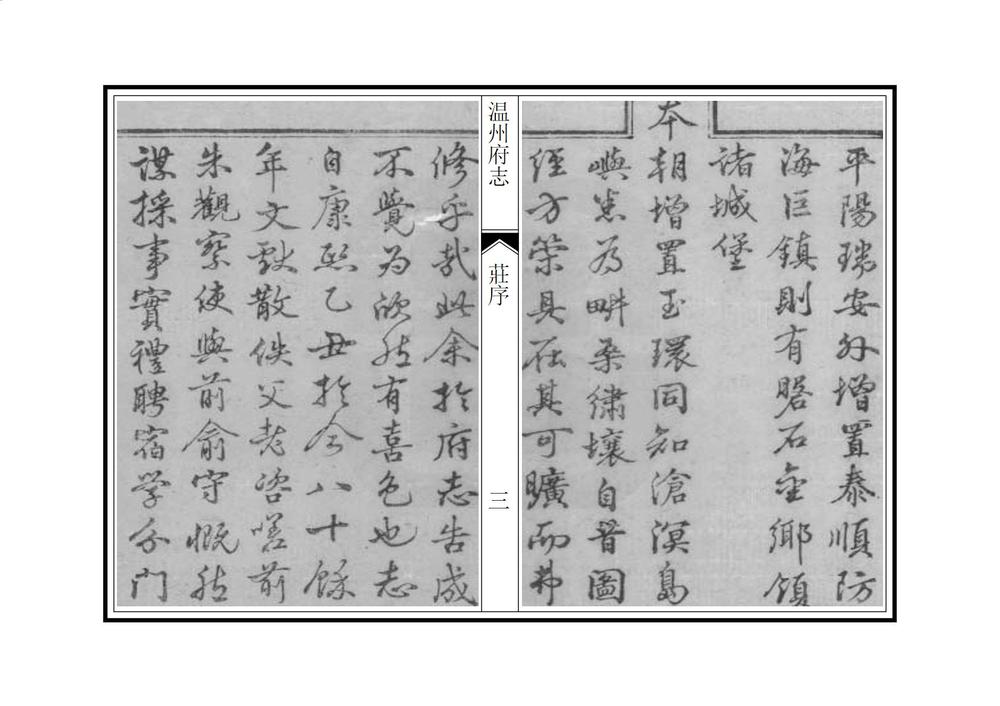 平陽瑞安外增置泰順防
海巨鎮則有磐石金鄉鎮
諸城堡
本
朝增置玉環同知滄溟島
嶼悉為畊桑繡壤自昔圖
經方策具在其可曠而弗
温州府志
莊序
三
修乎哉此余於府志告成
不覺為欣然有喜色也志
自康熙乙丑於今八十餘
年文獻散佚父老咨嗟前
朱觀察使與前俞守慨然
謀採事實禮聘宿學分門